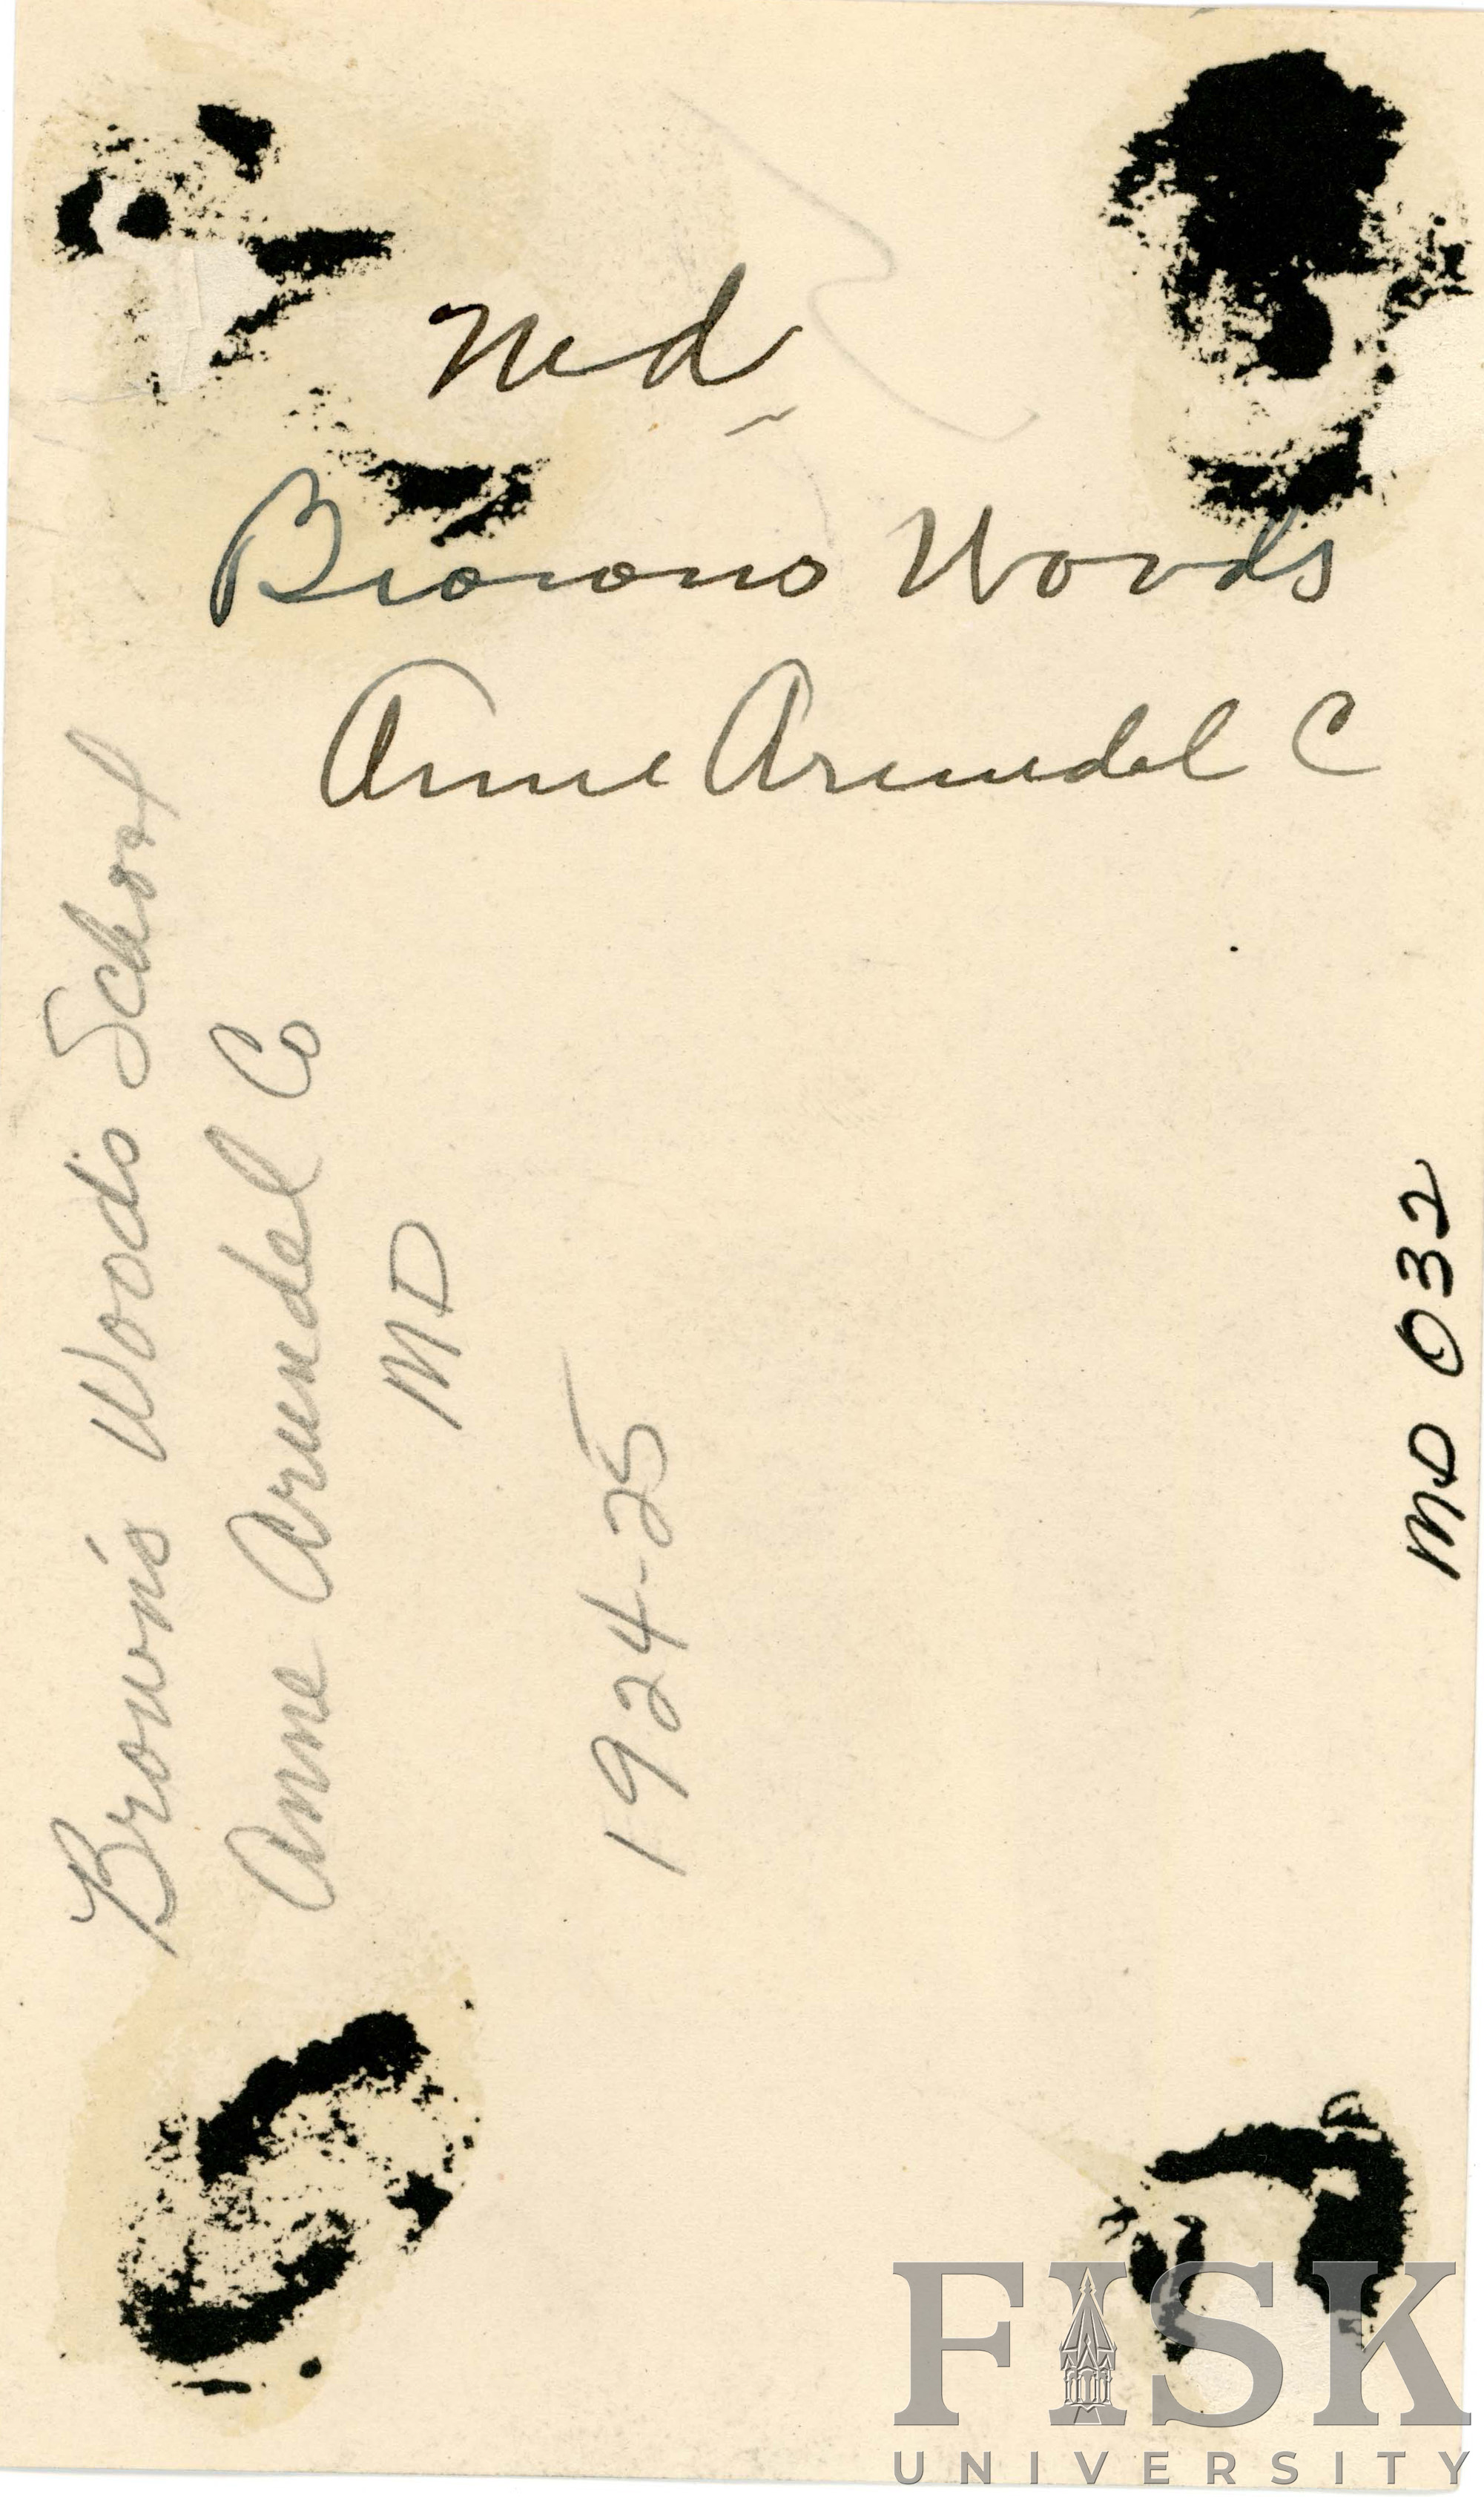 Md
Browns Woods
Anne Arundel C
Brown's Woods School
Anne Arundel Co
MD
1924-25
MD 032
FISK
UNIVERSITY